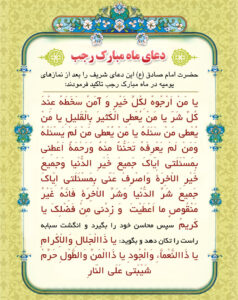 دعای ماه مبارک رجب
حضرت امام صادق (ع) این دعای شریف را بعد از نمازهای
یومیه در ماه مبارک رجب تأکید فرمودند:
یا مَن اَرجوهُ لِکُلِّ خَیرٍ وَ آمَنُ سَخَطَهُ عِندَ
کُلِّ شَرٍّ یا مَن یُعطی الکَثیرَ بِالقَلیلِ یا مَن
یُعطی مَن سَئَلَهُ یا مَن یُعطی مَن لَم یَسئَلهُ
وَمَن لَم یَعرِفهُ تَحَنُّناً مِنهُ وَرَحمَةً اَعطِنی
بِمَسئَلَتی اِیاکَ جَمیعَ خَیرِ الدُّنیا وَجَمیعَ
خَیرِ الآخِرَةِ وَاصرِف عَنی بِمَسئَلَتی اِیاکَ
جَمیعَ شَرِّ الدُّنیا وَشَرِّ الآخِرَةِ فَاِنَّهُ غَیرُ
مَنقوصٍ ما اَعطَیتَ وَ زِدنی مِن فَضلِکَ یا
کَریمُ سپس محاسن خود را بگیرد و انگشت سبابه
راست را تکان دهد و بگوید: یا ذَاالجَلالِ وَالاِکرامِ
یا ذَاالنَّعماءِ وَالجودِ یا ذَاالمَنِّ وَالطَّولِ حَرِّم
شَیبَتی عَلَی النّارِ